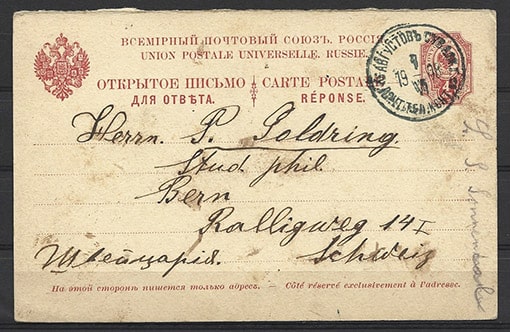 ВСЕМІРНЫЙ ПОЧТОВЫЙ СОЮЗЪ. РОССІЯ
UNION POSTALE UNIVERSELLE. RUSSIE.
ОТКРЫТОЕ ПИСЬМО
CARTE POSTA
ДЛЯ ОТВѢТА.
RÉPONSE.
АВГУСТОВЪ
19
Herrn. P. Goldring.
Stud phil.
Bern
Ralligweg 14 I
Швейцарія. Schweiz
На этой сторонѣ пишется только адресъ. – Côté réservé exclusivement à l'adresse.